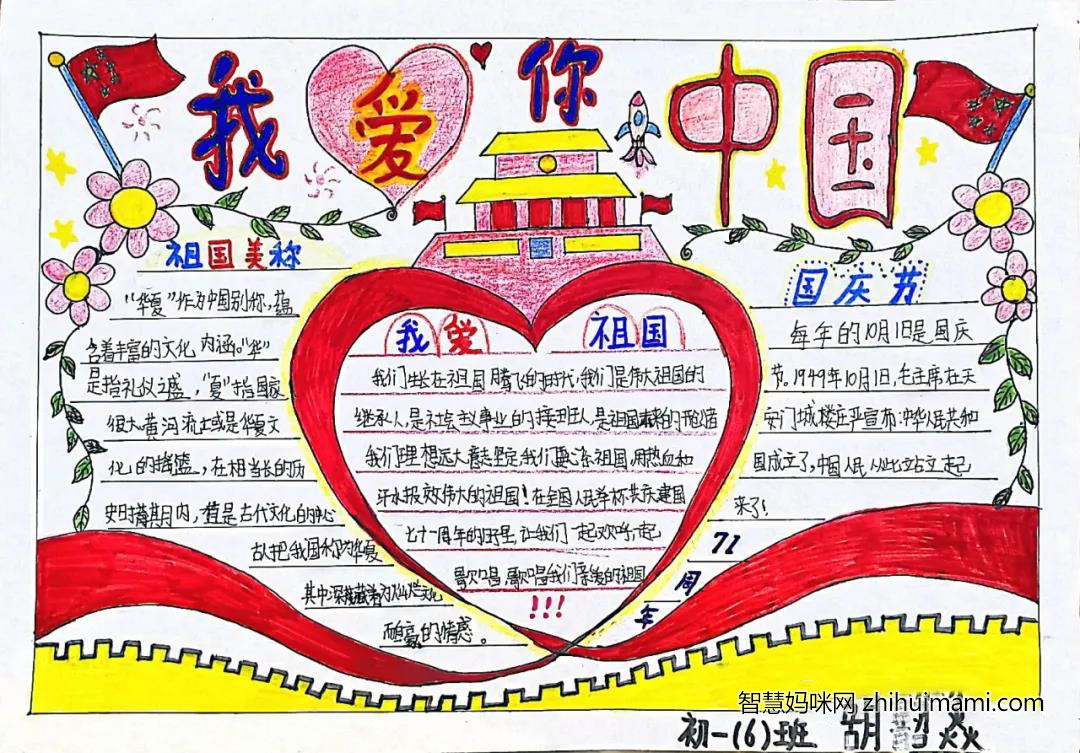 我爱你中国
祖国美称
"华夏"作为中国别称，蕴
含着丰富的文化内涵。"华"
是指礼仪之盛，"夏"指国家
很大。黄河流域是华夏文
化的摇篮，在相当长的历
史时期内，曾是古代文化的中心
故把我国称为华夏
其中深藏着对灿烂文化
而自豪的情感。
我爱 祖国
我们生长在祖国腾飞的时代，我们是伟大祖国的
继承人，是社会主义事业的接班人，是祖国未来的开拓者
我们理想远大意志坚定，我们要心系祖国，用热血和
汗水报效伟大的祖国！在全国人民举杯共庆建国
七十一周年的时里，让我们一起欢呼，一起
歌唱，歌唱我们亲爱的祖国
!!!
国庆节
每年的10月1日是国庆
节。1949年10月1日，毛主席在天
安门城楼庄严宣布：中华人民共和
国成立了，中国人民从此站立起
来了！
71
周
年
智慧妈咪网 zhihuimami.com
初一(6)班 胡韶焱